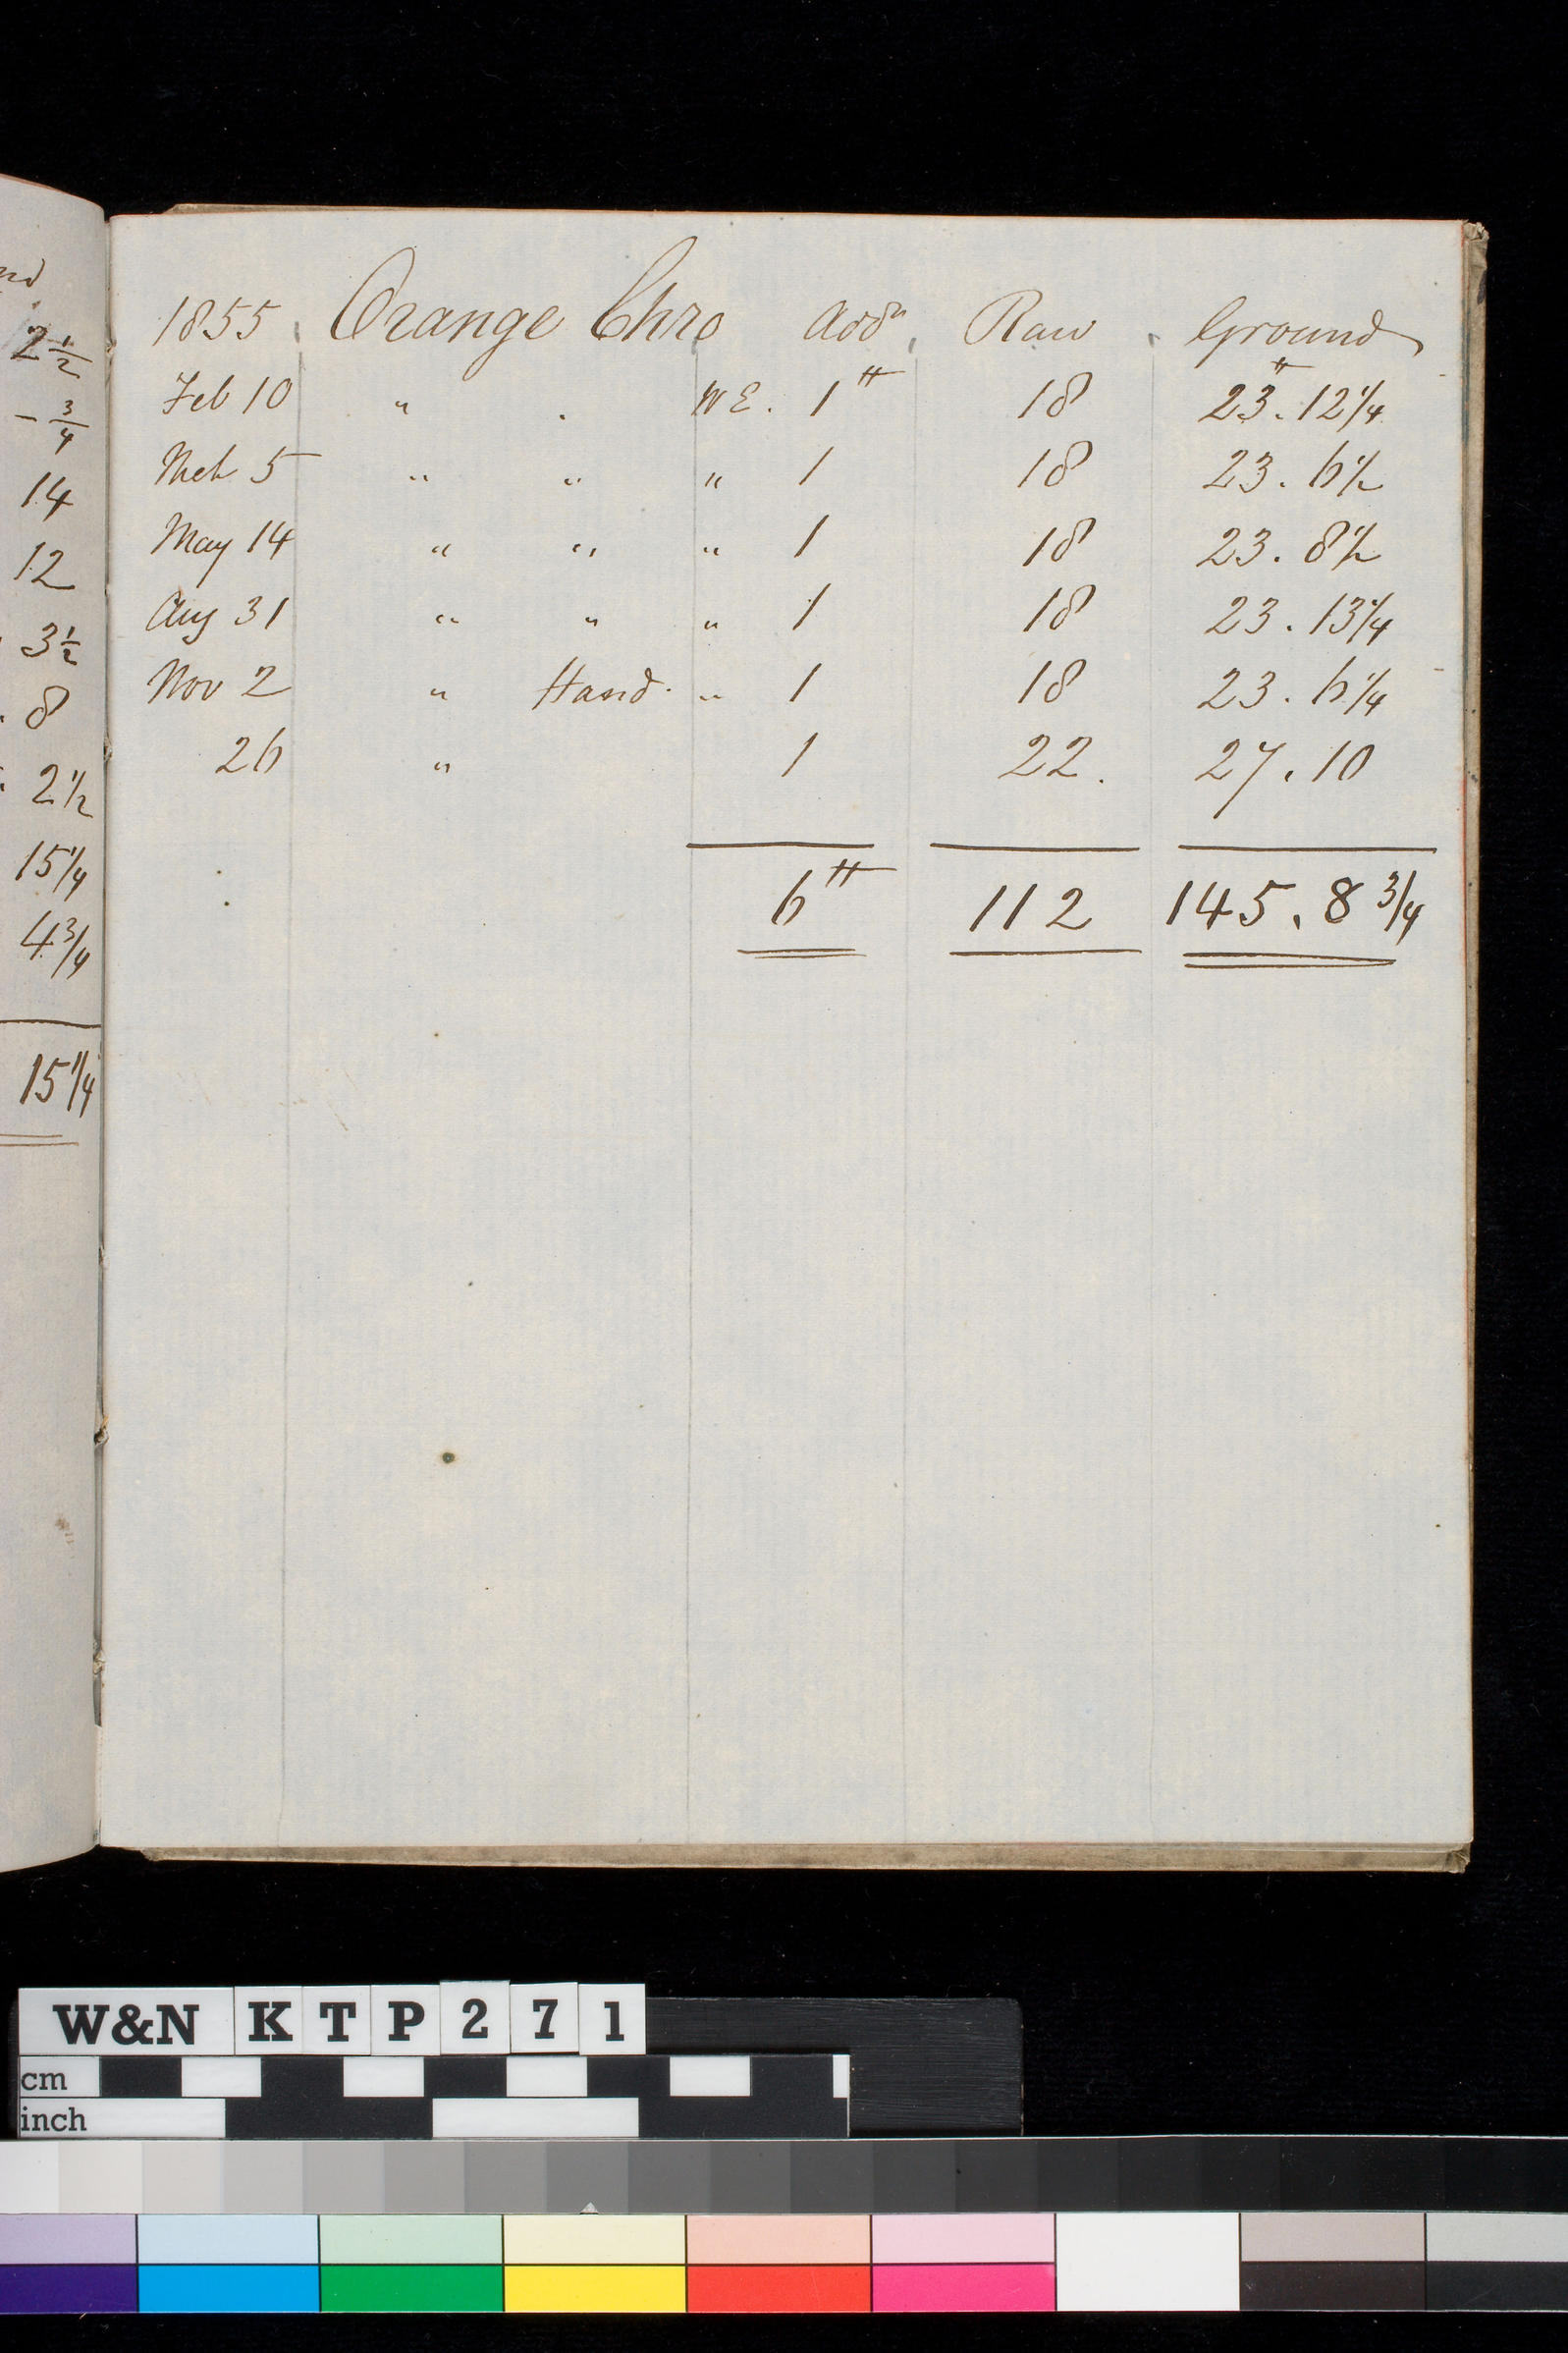 nd
2 1/2
- 3/4
14
12
3 1/2
8
2 1/2
15 1/4
4 3/4
15 1/4
1855 Orange Chro Addn Raw Ground
Feb 10 " . WE. 1 ℔ 18 23 ℔. 12 1/4
Mch 5 " " " 1 18 23. 6 1/2
May 14 " " " 1 18 23. 8 1/2
Aug 31 " " " 1 18 23. 13 1/4
Nov 2 " Hand. " 1 18 23. 6 1/4
26 " 1 22. 27. 10
6 ℔ 112 145. 8 3/4
W&N KTP 271
cm
inch